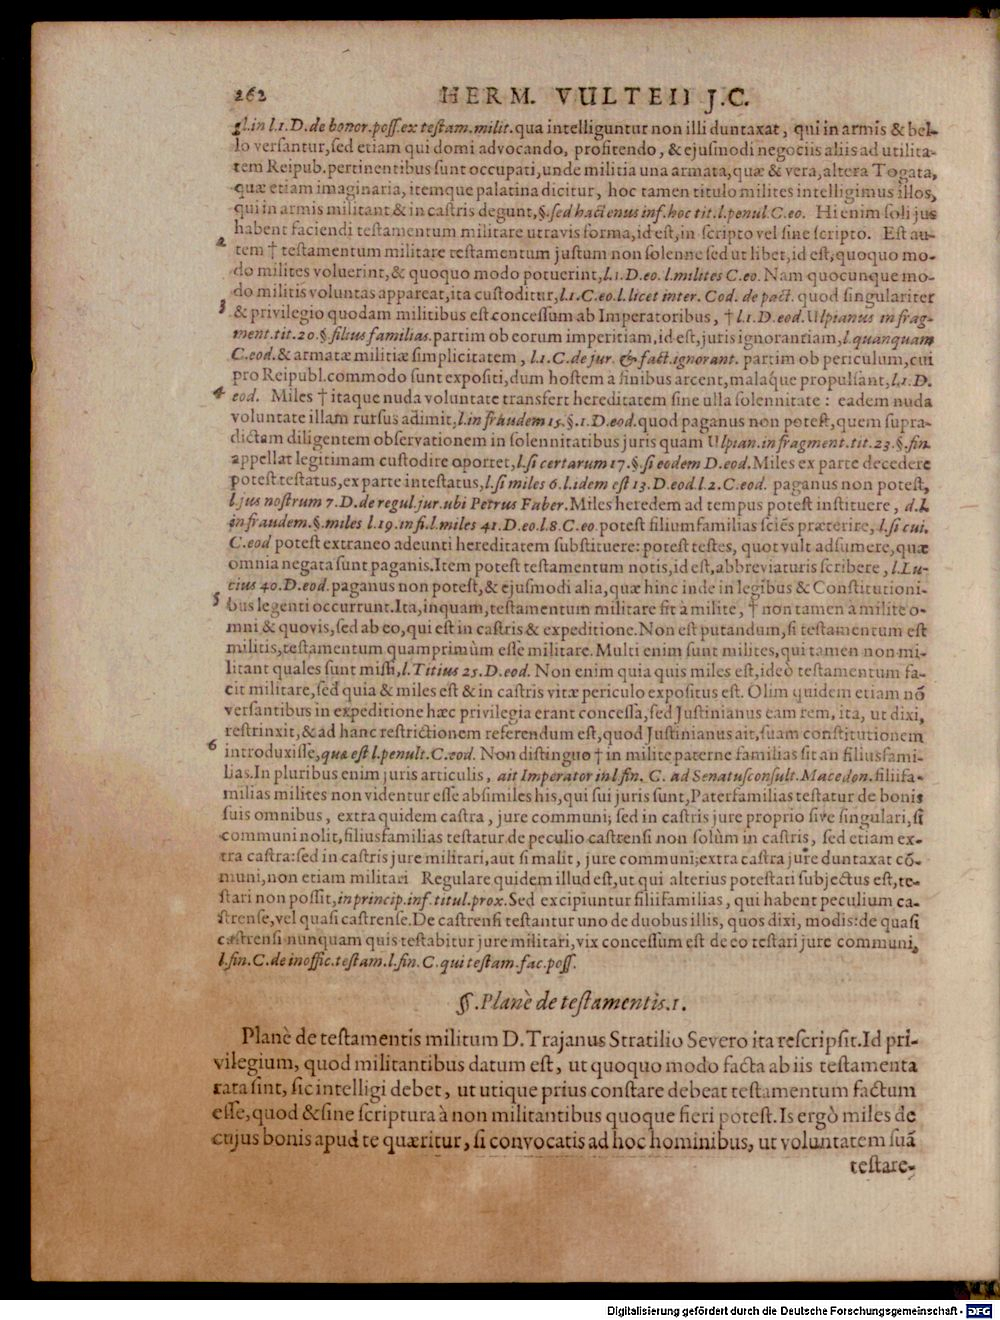 262 HERM. VULTEII J.C.
gl. in l.1. D. de bonor. poss. ex testam. milit. qua intelliguntur non illi duntaxat, qui in armis & bel-
lo versantur, sed etiam qui domi advocando, profitendo, & ejusmodi negociis aliis ad utilita-
tem Reipub. pertinentibus sunt occupati, unde militia una armata, quæ & vera, altera Togata,
quæ etiam imaginaria, itemque palatina dicitur, hoc tamen titulo milites intelligimus illos,
qui in armis militant & in castris degunt, §. sed hactenus inf. hoc tit. l. penul. C. eo. Hi enim soli jus
habent faciendi testamentum militare utravis forma, id est, in scripto vel sine scripto. Est au-
2 tem † testamentum militare testamentum justum non solenne sed ut libet, id est, quoquo mo-
do milites voluerint, & quoquo modo potuerint, l.1. D. eo. l. milites C. eo. Nam quocunque mo-
do militis voluntas appareat, ita custoditur, l.1. C. eo. l. licet inter. Cod. de pact. quod singulariter
3 & privilegio quodam militibus est concessum ab Imperatoribus, † l.1. D. eod. Ulpianus in frag-
ment. tit. 20. §. filius familias. partim ob eorum imperitiam, id est, juris ignorantiam, l. quanquam
C. eod. & armatæ militiæ simplicitatem, l.1. C. de jur. & fact. ignorant. partim ob periculum, cui
pro Reipubl. commodo sunt expositi, dum hostem à finibus arcent, malaque propulsant, l.1. D.
4 eod. Miles † itaque nuda voluntate transfert hereditatem sine ulla solennitate : eadem nuda
voluntate illam rursus adimit, l. in fraudem 15. §.1. D. eod. quod paganus non potest, quem supra-
dictam diligentem observationem in solennitatibus juris quam Ulpian. in fragment. tit. 23. §. fin.
appellat legitimam custodire oportet, l. si certarum 17. §. si eodem D. eod. Miles ex parte decedere
potest testatus, ex parte intestatus, l. si miles 6. l. idem est 13. D. eod. l.2. C. eod. paganus non potest,
l. jus nostrum 7. D. de regul. jur. ubi Petrus Faber. Miles heredem ad tempus potest instituere, d. l.
in fraudem. §. miles l.19. in fi. l. miles 41. D. eo. l.8. C. eo. potest filiumfamilias sciẽs præterire, l. si cui.
C. eod potest extraneo adeunti hereditatem substituere: potest testes, quot vult adsumere, quæ
omnia negata sunt paganis. Item potest testamentum notis, id est, abbreviaturis scribere, l. Lu-
cius 40. D. eod. paganus non potest, & ejusmodi alia, quæ hinc inde in legibus & Constitutioni-
5 bus legenti occurrunt. Ita, inquam, testamentum militare fit à milite, † non tamen à milite o-
mni & quovis, sed ab eo, qui est in castris & expeditione. Non est putandum, si testamentum est
militis, testamentum quamprimùm esse militare. Multi enim sunt milites, qui tamen non mi-
litant quales sunt missi, l. Titius 25. D. eod. Non enim quia quis miles est, ideò testamentum fa-
cit militare, sed quia & miles est & in castris vitæ periculo expositus est. Olim quidem etiam nõ
versantibus in expeditione hæc privilegia erant concessa, sed Justinianus eam rem, ita, ut dixi,
restrinxit, & ad hanc restrictionem referendum est, quod Justinianus ait, suam constitutionem
6 introduxisse, quæ est l. penult. C. eod. Non distinguo † in milite paterne familias sit an filiusfami-
lias. In pluribus enim juris articulis, ait Imperator in l. fin. C. ad Senatusconsult. Macedon. filiifa-
milias milites non videntur esse absimiles his, qui sui juris sunt, Paterfamilias testatur de bonis
suis omnibus, extra quidem castra, jure communi; sed in castris jure proprio sive singulari, si
communi nolit, filiusfamilias testatur de peculio castrensi non solùm in castris, sed etiam ex-
tra castra: sed in castris jure militari, aut si malit, jure communi; extra castra jure duntaxat cõ-
muni, non etiam militari Regulare quidem illud est, ut qui alterius potestati subjectus est, te-
stari non possit, in princip. inf. titul. prox. Sed excipiuntur filiifamilias, qui habent peculium ca-
strense, vel quasi castrense. De castrensi testantur uno de duobus illis, quos dixi, modis: de quasi
castrensi nunquam quis testabitur jure militari, vix concessum est de eo testari jure communi,
l. fin. C. de inoffic. testam. l. fin. C. qui testam. fac. poss.
§. Planè de testamentis. 1.
Planè de testamentis militum D. Trajanus Stratilio Severo ita rescripsit. Id pri-
vilegium, quod militantibus datum est, ut quoquo modo facta ab iis testamenta
rata sint, sic intelligi debet, ut utique prius constare debeat testamentum factum
esse, quod & sine scriptura à non militantibus quoque fieri potest. Is ergò miles de
cujus bonis apud te quæritur, si convocatis ad hoc hominibus, ut voluntatem suã
testare-
Digitalisierung gefördert durch die Deutsche Forschungsgemeinschaft - DFG